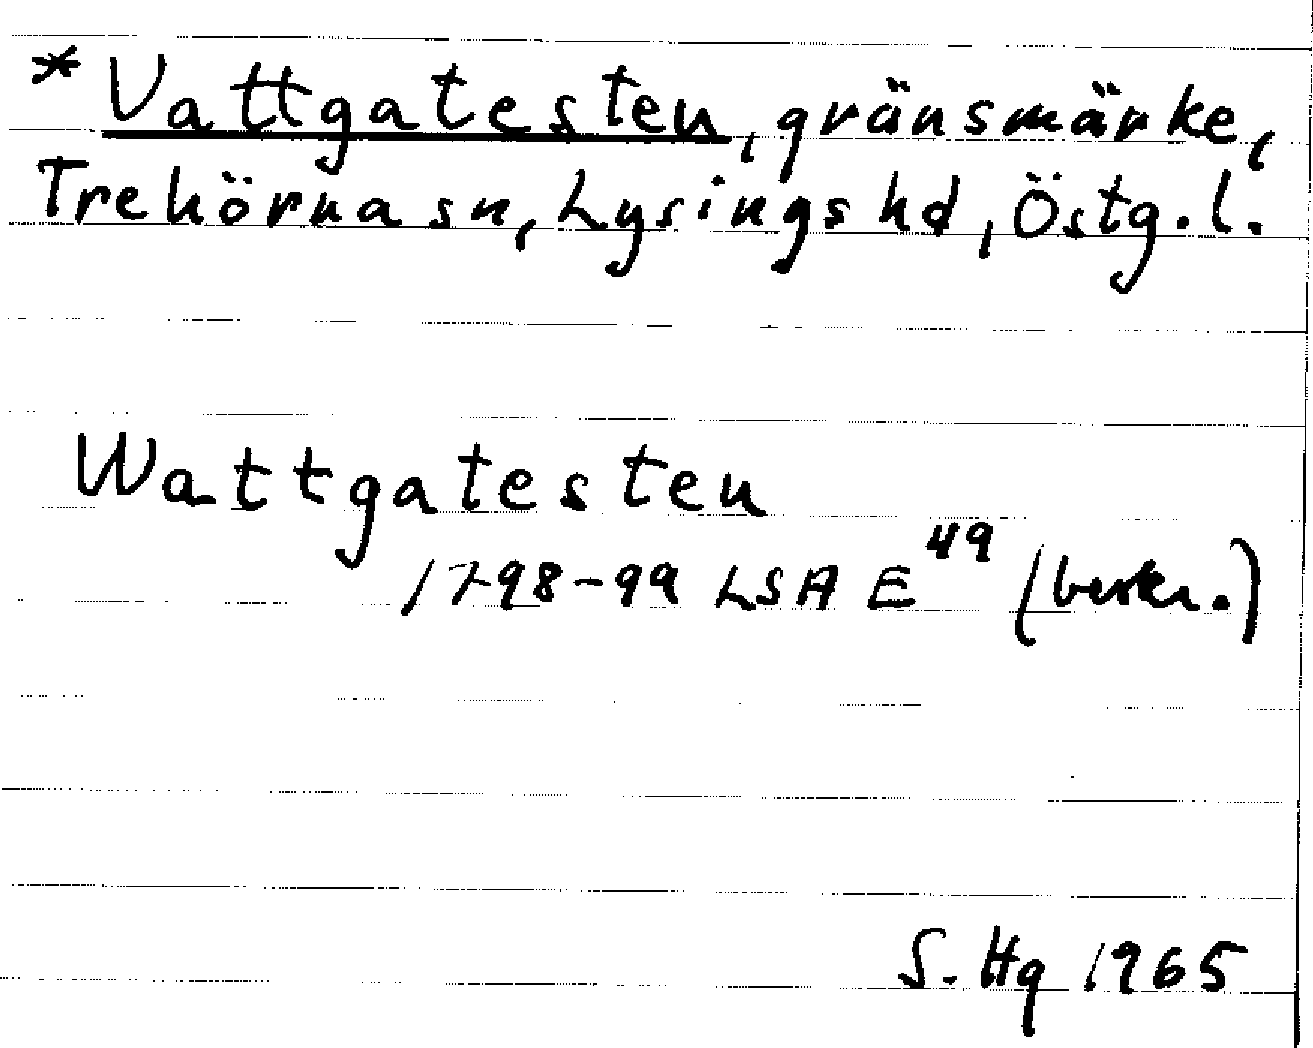 *Vattgatesten, gränsmärke,
Trehörna sn, Lysings hd, Östg.l.
Wattgatesten
1798-99 LSA E⁴⁹ (beskr.)
S. Hg 1965